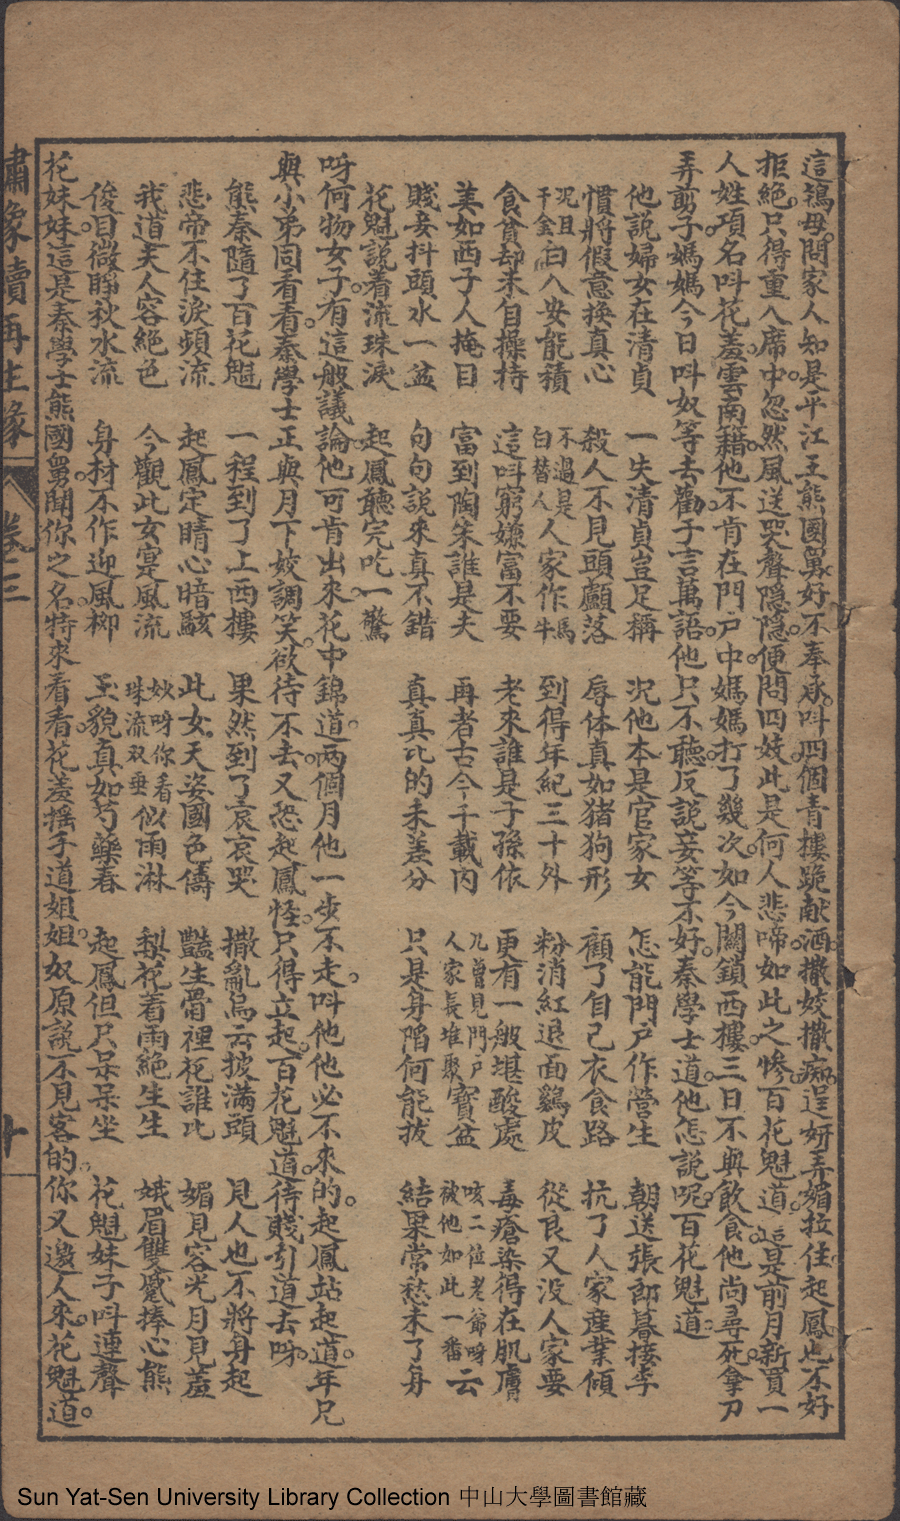 這鴇母。問家人知是平江王熊國舅好不奉承。呌四個青樓跪献酒。撒妓撒痴。逞妍弄媚拉住起鳳也不好
拒絶。只得重入席中。忽然風送哭聲隠隠。便問四妓此是何人悲啼。如此之惨百花魁道。這是前月新買一
人姓項名呌花羞。雲南籍。他不肯在門戸中。媽媽打了幾次。如今關鎖西樓。三日不與飲食。他尚尋死拿刀
弄剪子。媽媽今日呌奴等去勸。千言萬語。他只不聽。反説妾等不好。秦學士道。他怎説呢。百花魁道。
他說婦女在清貞 一失清貞豈足稱 况他本是官家女 怎能門戸作營生 朝送張郎暮接李
慣將假意換真心 殺人不見頭顱落 辱体真如猪狗形 顧了自己衣食路 抗了人家産業傾
况且千金白人安能積 不過是白替人人家作馬牛 到得年紀三十外 粉消紅退面鷄皮 從良又没人家要
食貧却未自操持 這呌窮嫌富不要 老來誰是子孫依 更有一般堪酸處 毒瘡染得在肌膚
美如西子人掩目 富到陶朱誰是夫 再者古今千載内 几曾見門戸人家長堆聚寳盆 咳二位老爺呀被他如此一番云
賤妾抖頭水一盆 句句說來真不錯 真真比的未差分 只是身陷何能拔 結果常愁未了身
花魁說着流珠淚 起鳳聽完吃一驚
呀何物女子。有這般議論。他可肯出來。花中錦道。两個月他一步不走。呌他他必不來的。起鳳站起道。年兄
與小弟同看看。秦學士正與月下妓調笑。欲待不去。又恐起鳳怪。只得立起。百花魁道。待賤引道去呀。
熊秦隨了百花魁 一程到了上西樓 果然到了哀哀哭 撒亂烏云披满頭 見人也不將身起
悲帝不住淚頻流 起鳳定睛心暗駭 此女天姿國色儔 豔生骨裡花誰比 媚見容光月見羞
我道夫人容絶色 今觀此女寔風流 妙呀你看珠流双垂似雨淋 梨花着雨絶生生 娥眉雙蹙捧心熊
俊目微睜秋水流 身材不作迎風柳 玉貌真如芍藥春 起鳳但只呆呆坐 花魁妹子呌連聲
花妹妹這是秦學士熊國舅。聞你之名。特來看看。花羞摇手道姐姐。奴原説不見客的。你又邀人來。花魁道。
繡像續再生緣 卷三 十
Sun Yat-Sen University Library Collection 中山大學圖書館藏